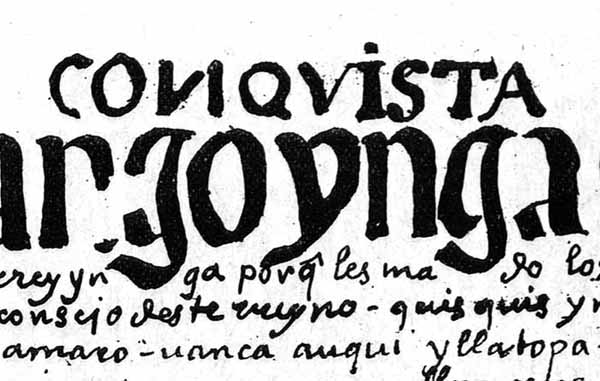 CONQVİSTA
ar.goynga
ga porq̃ les ma do los
consejo deste rreyno - quis quis y
amaro - uanca auqui yllatopa -